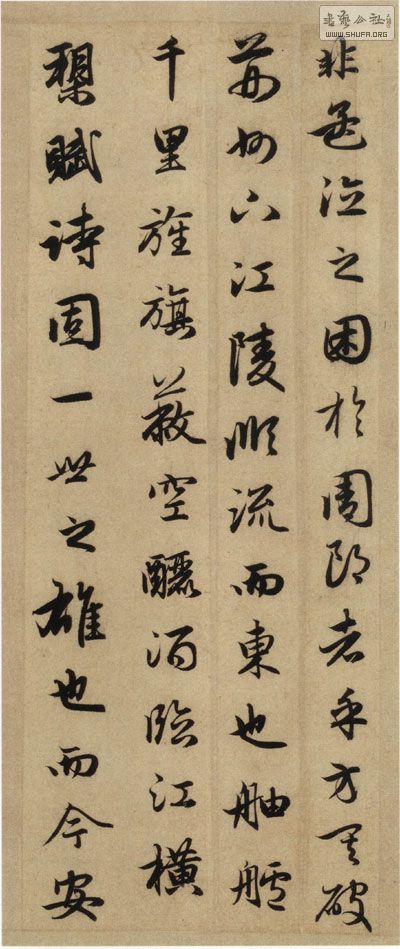 非孟德之困於周郎者乎方其破
荊州下江陵順流而東也舳艫
千里旌旗蔽空釃酒臨江橫
槊賦詩固一世之雄也而今安
書藝公社
WWW.SHUFA.ORG